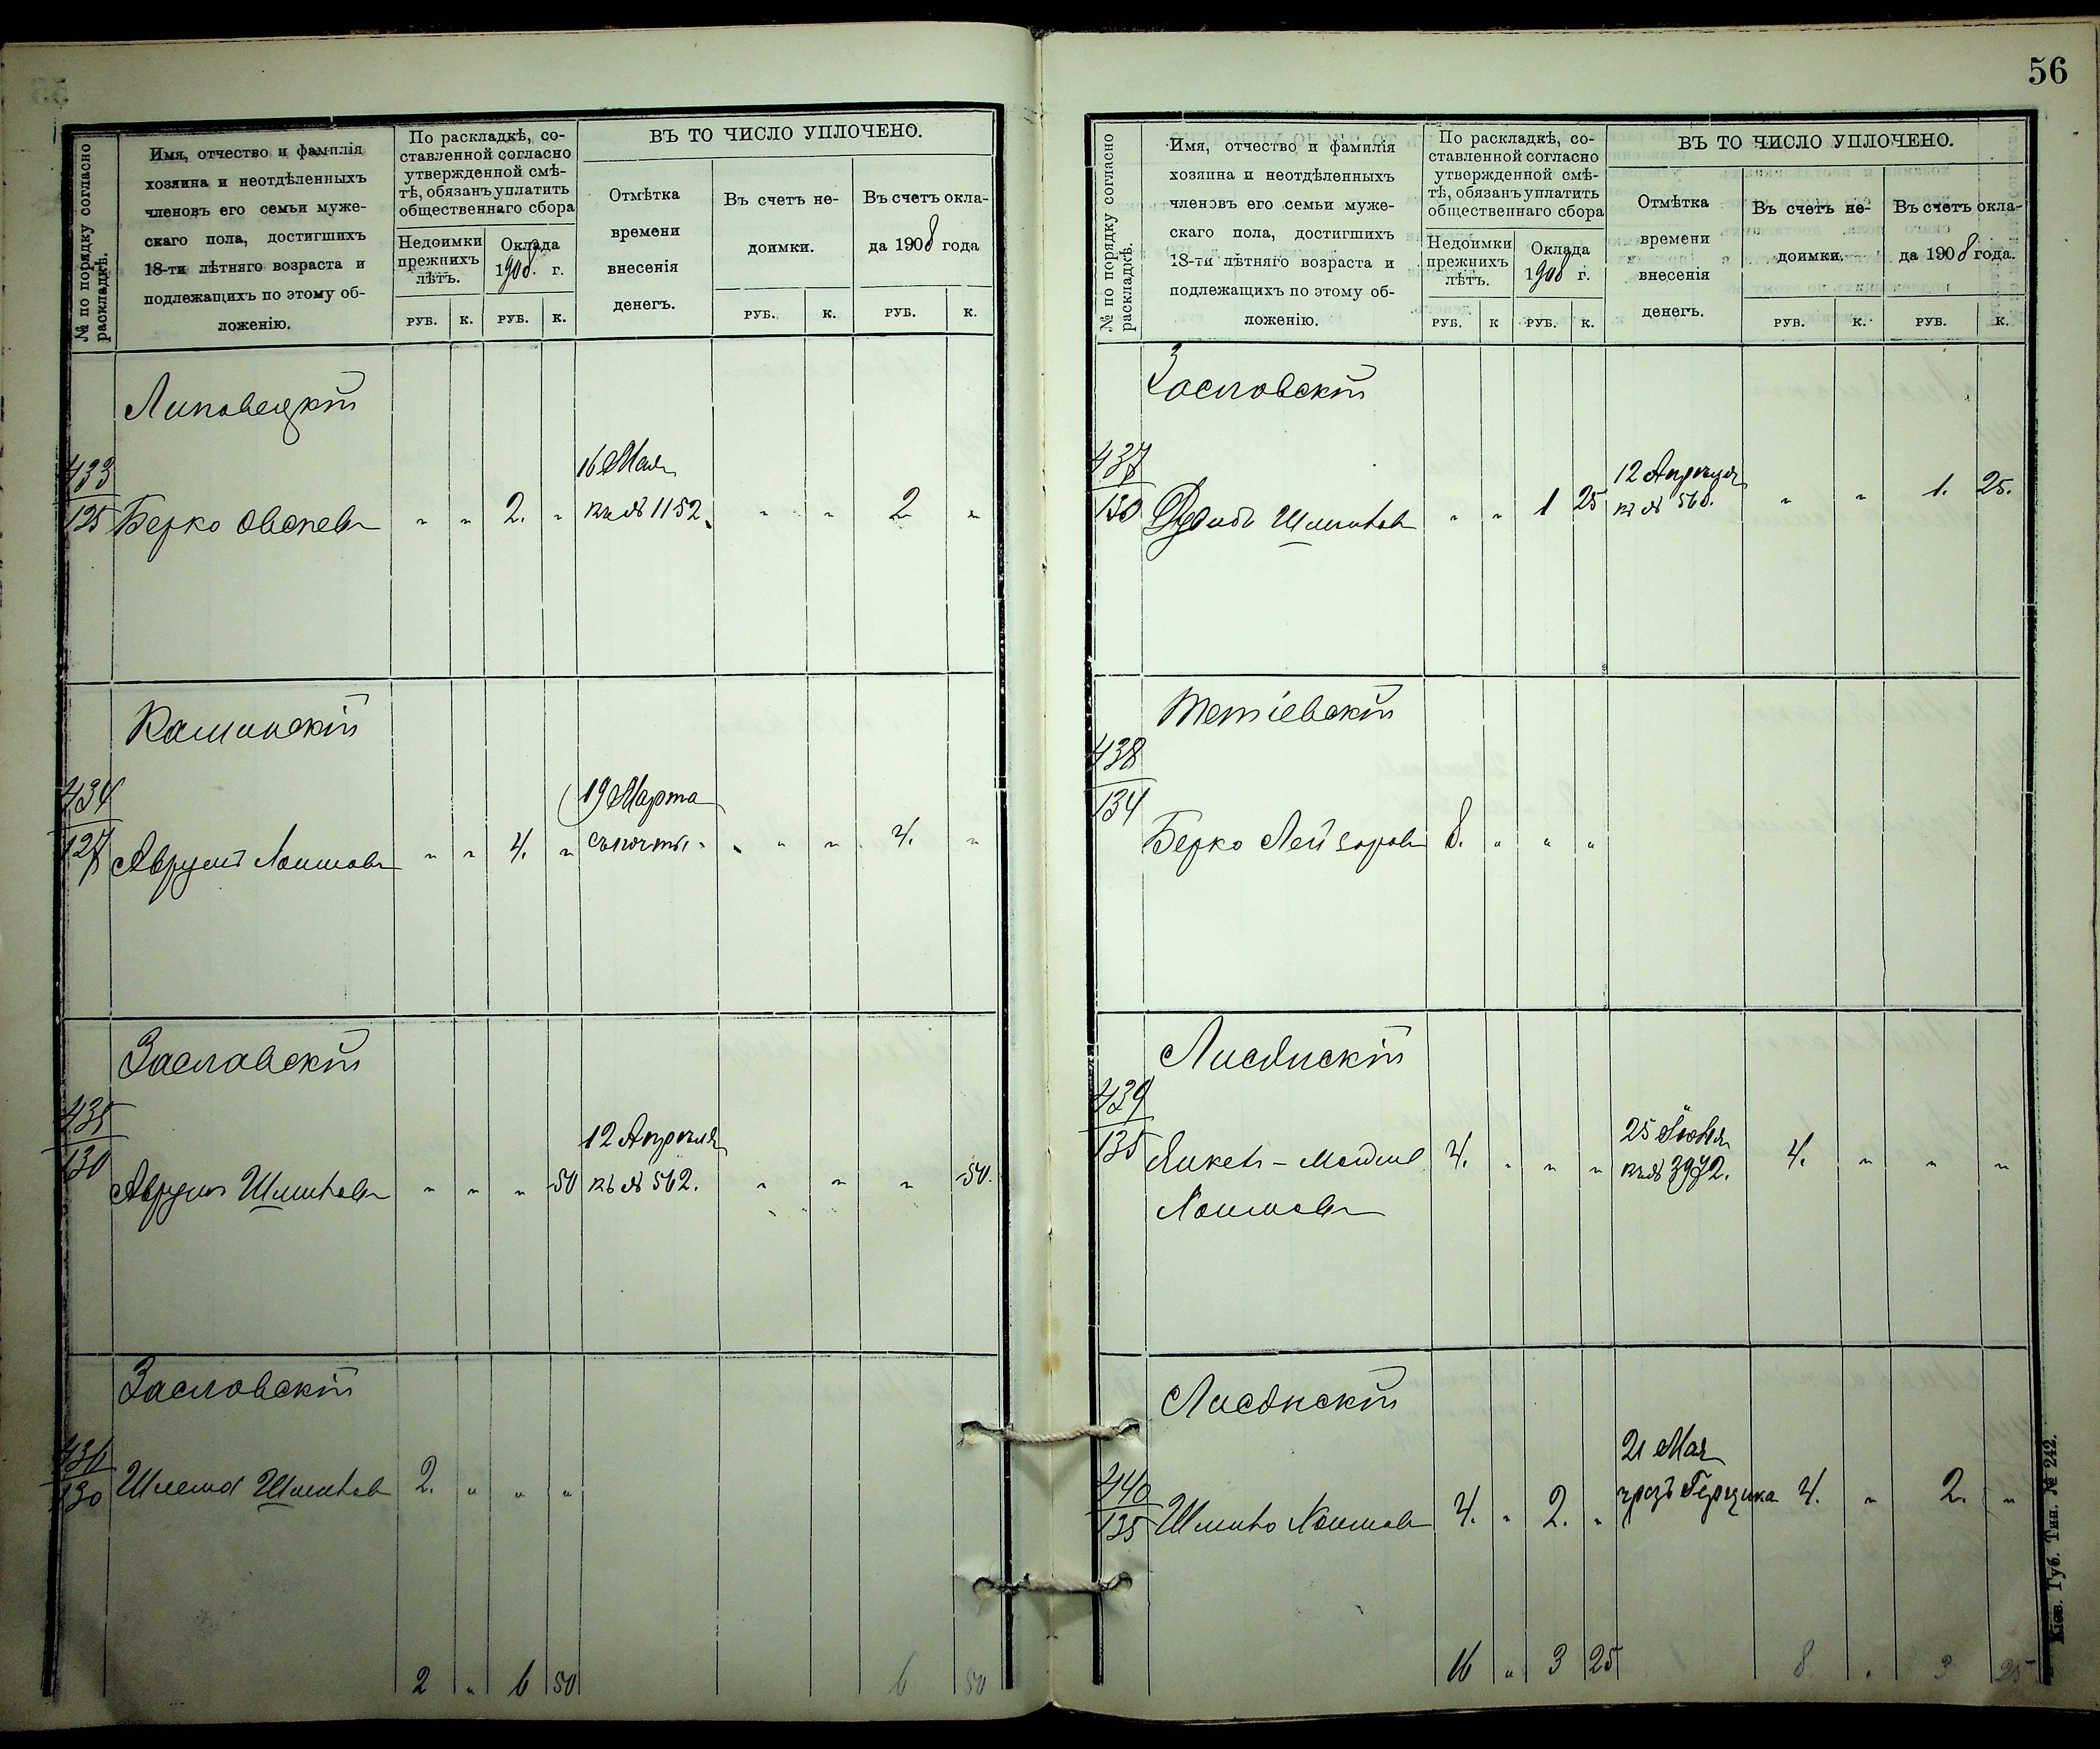 56
№ по порядку согласно раскладкѣ.
Имя, отчество и фамилія
хозяина и неотдѣленныхъ
членовъ его семьи муже-
скаго пола, достигшихъ
18-ти лѣтняго возраста и
подлежащихъ по этому об-
ложенію.
По раскладкѣ, со-
ставленной согласно
утвержденной смѣ-
тѣ, обязанъ уплатить
общественнаго сбора
Недоимки
прежнихъ
лѣтъ.
Оклада
1908 г.
ВЪ ТО ЧИСЛО УПЛОЧЕНО.
Отмѣтка
времени
внесенія
денегъ.
Въ счетъ не-
доимки.
Въ счетъ окла-
да 1908 года
РУБ. К. РУБ. К. РУБ. К. РУБ. К.
Липовецкій
433
125 Берко Овсеев " " 2. " 16 Мая къ № 1152. " " 2 "
Каминскій
434
127 Аврумъ Хаимовъ " " 4. " 19 Марта " " 4. "
Заславскій
435
130 Аврумъ Шмилевъ " " " 50 12 Апрѣля къ № 562. " " " 50.
Заславскій
436
130 2. " " "
2 " 6 50 6 50
№ по порядку согласно раскладкѣ.
Имя, отчество и фамилія
хозяина и неотдѣленныхъ
членовъ его семьи муже-
скаго пола, достигшихъ
18-ти лѣтняго возраста и
подлежащихъ по этому об-
ложенію.
По раскладкѣ, со-
ставленной согласно
утвержденной смѣ-
тѣ, обязанъ уплатить
общественнаго сбора
Недоимки
прежнихъ
лѣтъ.
Оклада
1908 г.
ВЪ ТО ЧИСЛО УПЛОЧЕНО.
Отмѣтка
времени
внесенія
денегъ.
Въ счетъ не-
доимки.
Въ счетъ окла-
да 1908 года.
РУБ. К РУБ. К. РУБ. К. РУБ. К.
Заславскій
437
130 " " 1 25 12 Апрѣля къ № 560. " " 1. 25.
Тетіевскій
438
134 Берко Лейзоровъ 8. " " "
Лисянскій
439
135 4. " " " 25 Іюня къ № 3972. 4. " " "
Хаимовъ
Лисянскій
440
135 Хаимовъ 4. " 2. " 21 Мая чрезъ Герщика 4. " 2. "
16 " 3 25 8. " 3 25
Кіев. Губ. Тип. № 242.